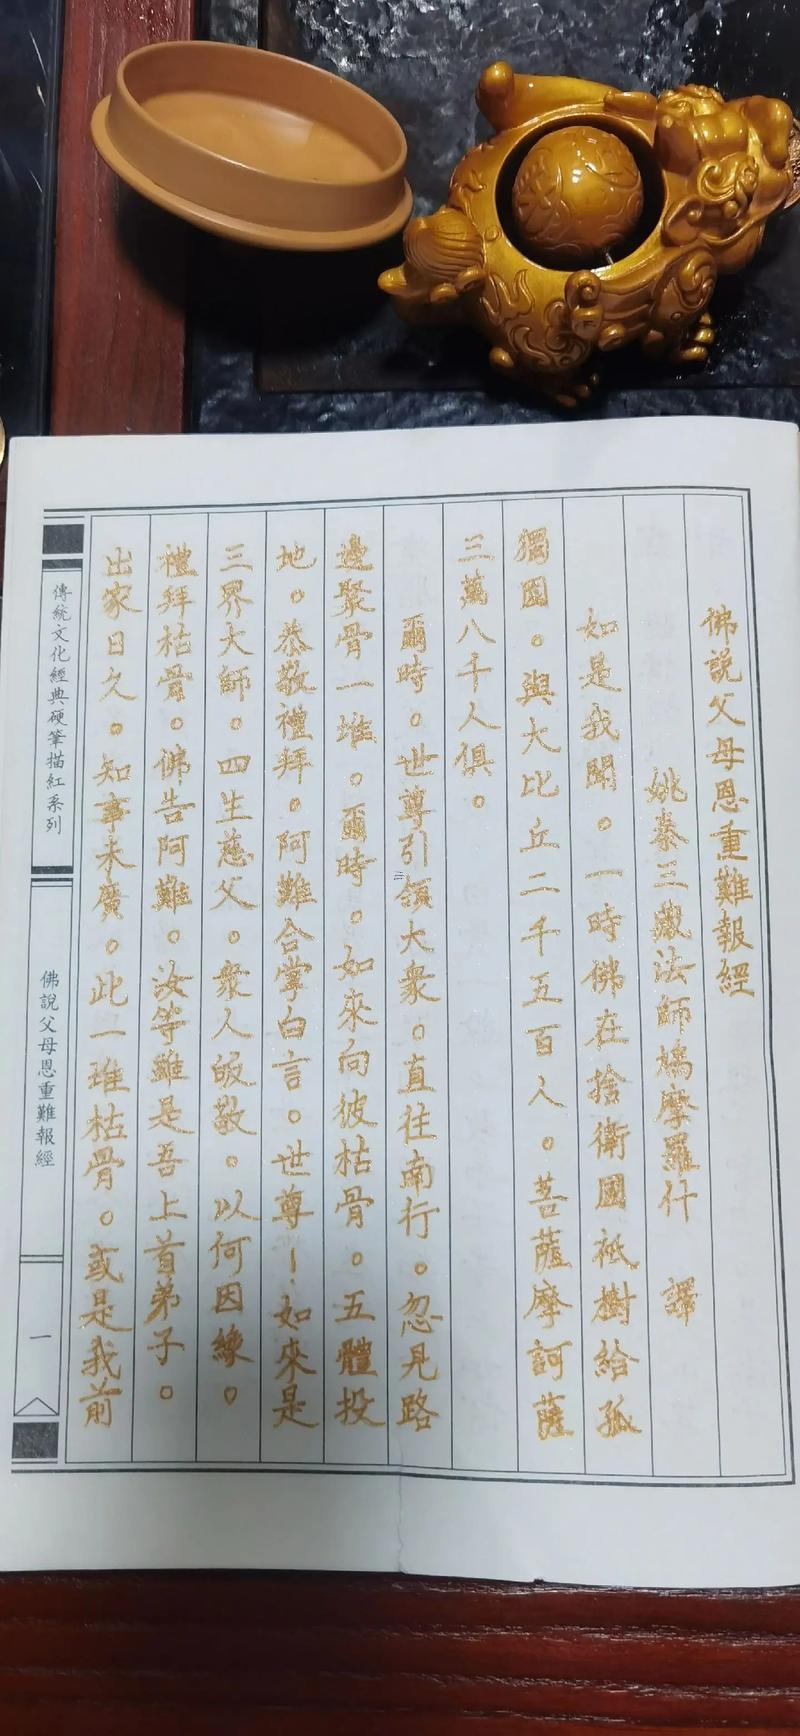 佛說父母恩重難報經
姚秦三藏法師鳩摩羅什 譯
如是我聞。一時佛在捨衛國祇樹給孤
獨園。與大比丘二千五百人。菩薩摩訶薩
三萬八千人俱。
爾時。世尊引領大衆。直往南行。忽見路
邊聚骨一堆。爾時。如來向彼枯骨。五體投
地。恭敬禮拜。阿難合掌白言。世尊！如來是
三界大師。四生慈父。衆人皈敬。以何因緣。
禮拜枯骨。佛告阿難。汝等雖是吾上首弟子。
出家日久。知事未廣。此一堆枯骨。或是我前
傳統文化經典硬筆描紅系列
佛說父母恩重難報經
一